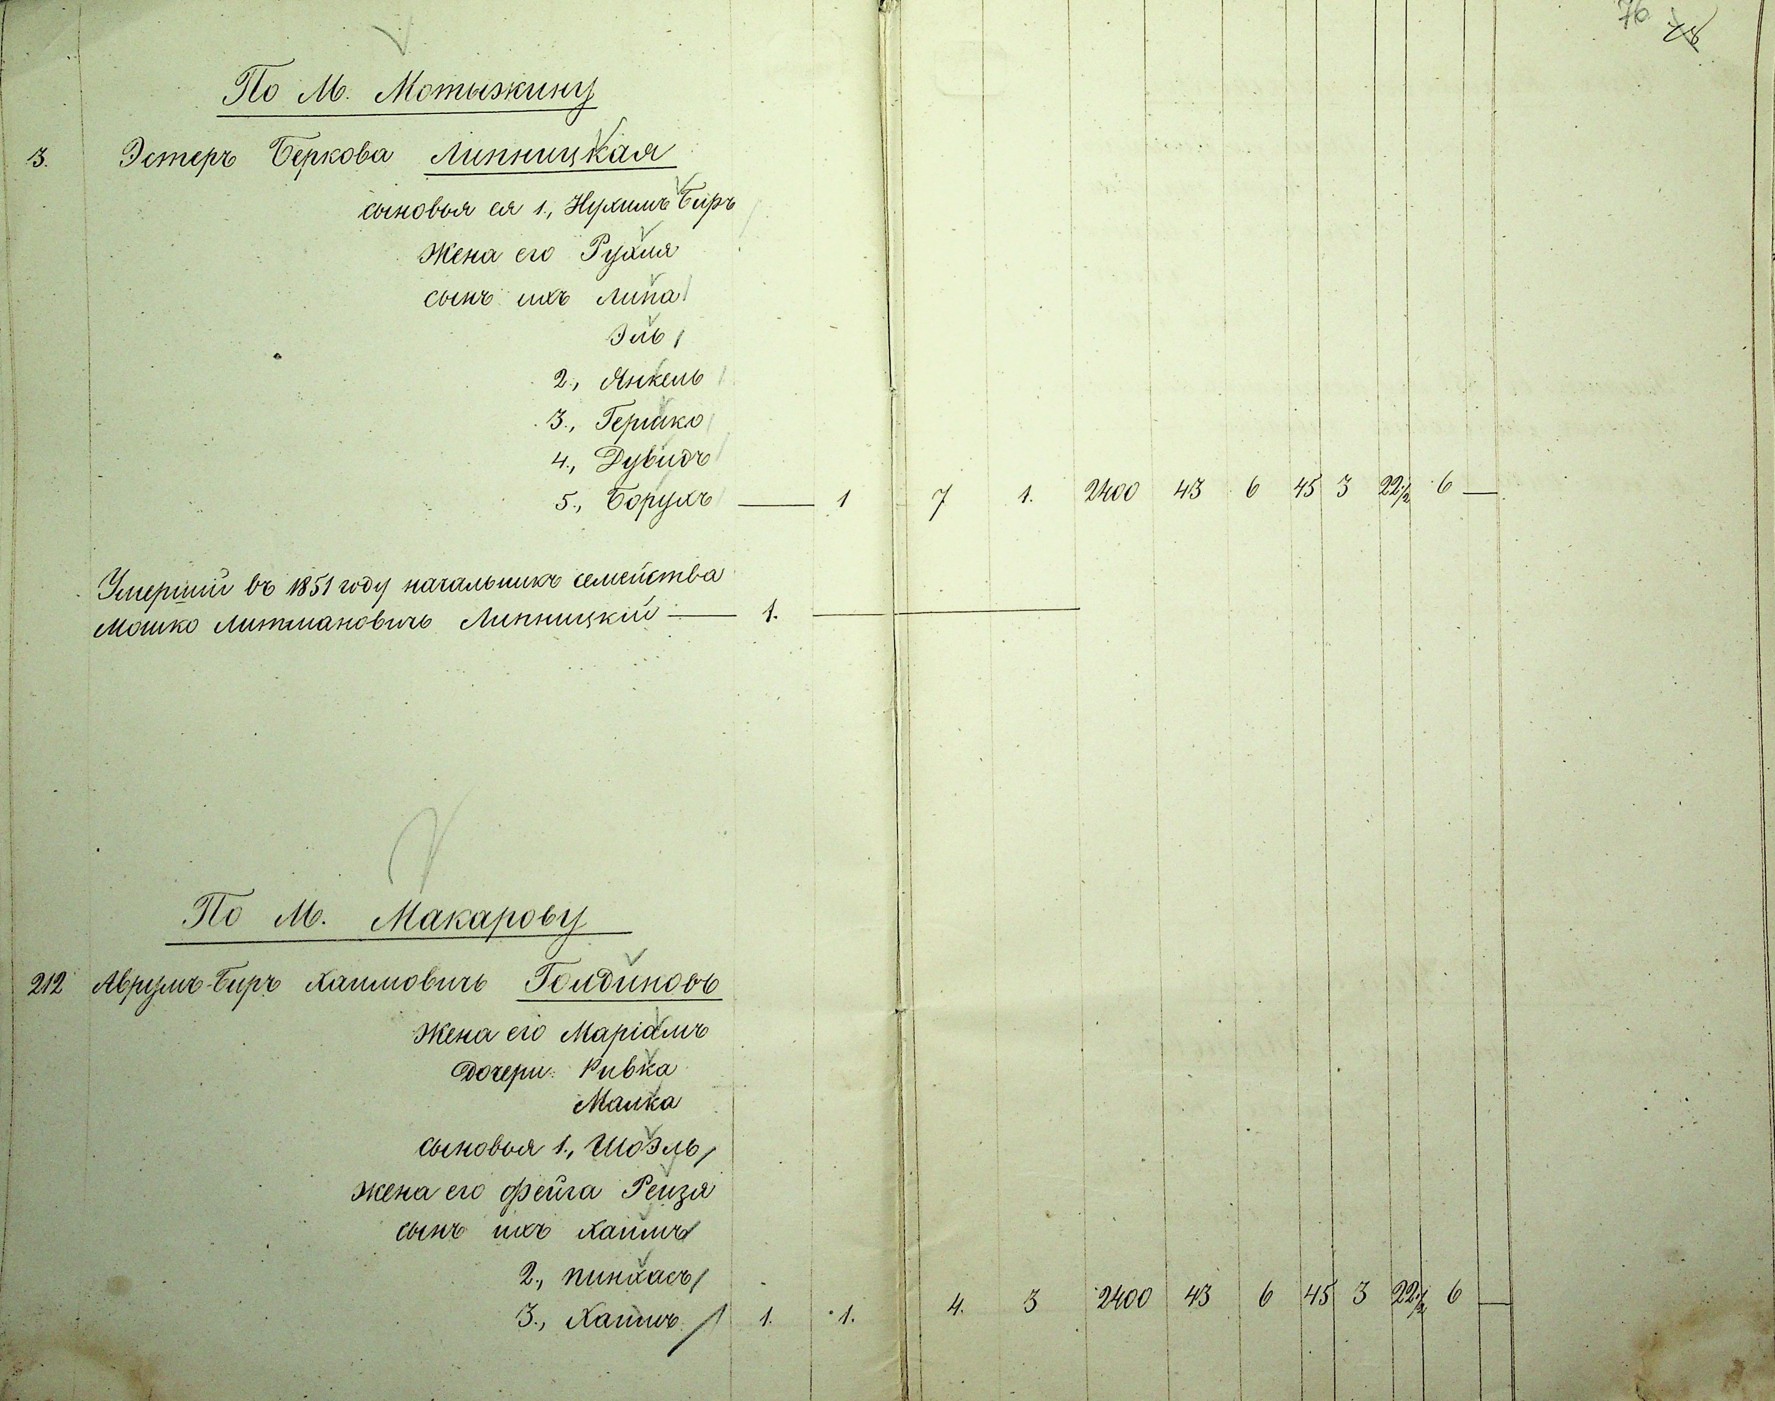 76 78
По М. Мотыжину
3. Эстеръ Беркова Липницкая
сыновья ея 1., Нухимъ Беръ
Жена его Рухля
сынъ ихъ Липа
Эль
2., Янкель
3., Гершко
4., Дувидъ
5., Борухъ — 1 7 1. 2400 43 6 45 3 22½ 6 —
Умерший въ 1851 году начальникъ семейства
Мошко Литмановичъ Липницкій — 1. —
По М. Макарову
212 Аврумъ-Беръ Хаимовичъ Голдиновъ
Жена его Маріамъ
Дочери: Ривка
Малка
сыновья 1., Шоэль
жена его Фейга Рейзя
сынъ ихъ Хаимъ
2., Пинхасъ
3., Хаимъ 1. 1. 4. 3 2400 43 6 45 3 22½ 6 —